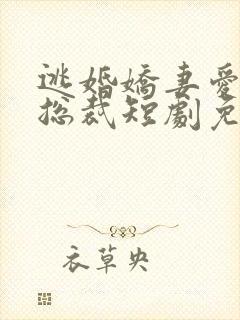 逃婚嬌妻愛
总裁短劇免
衣草央